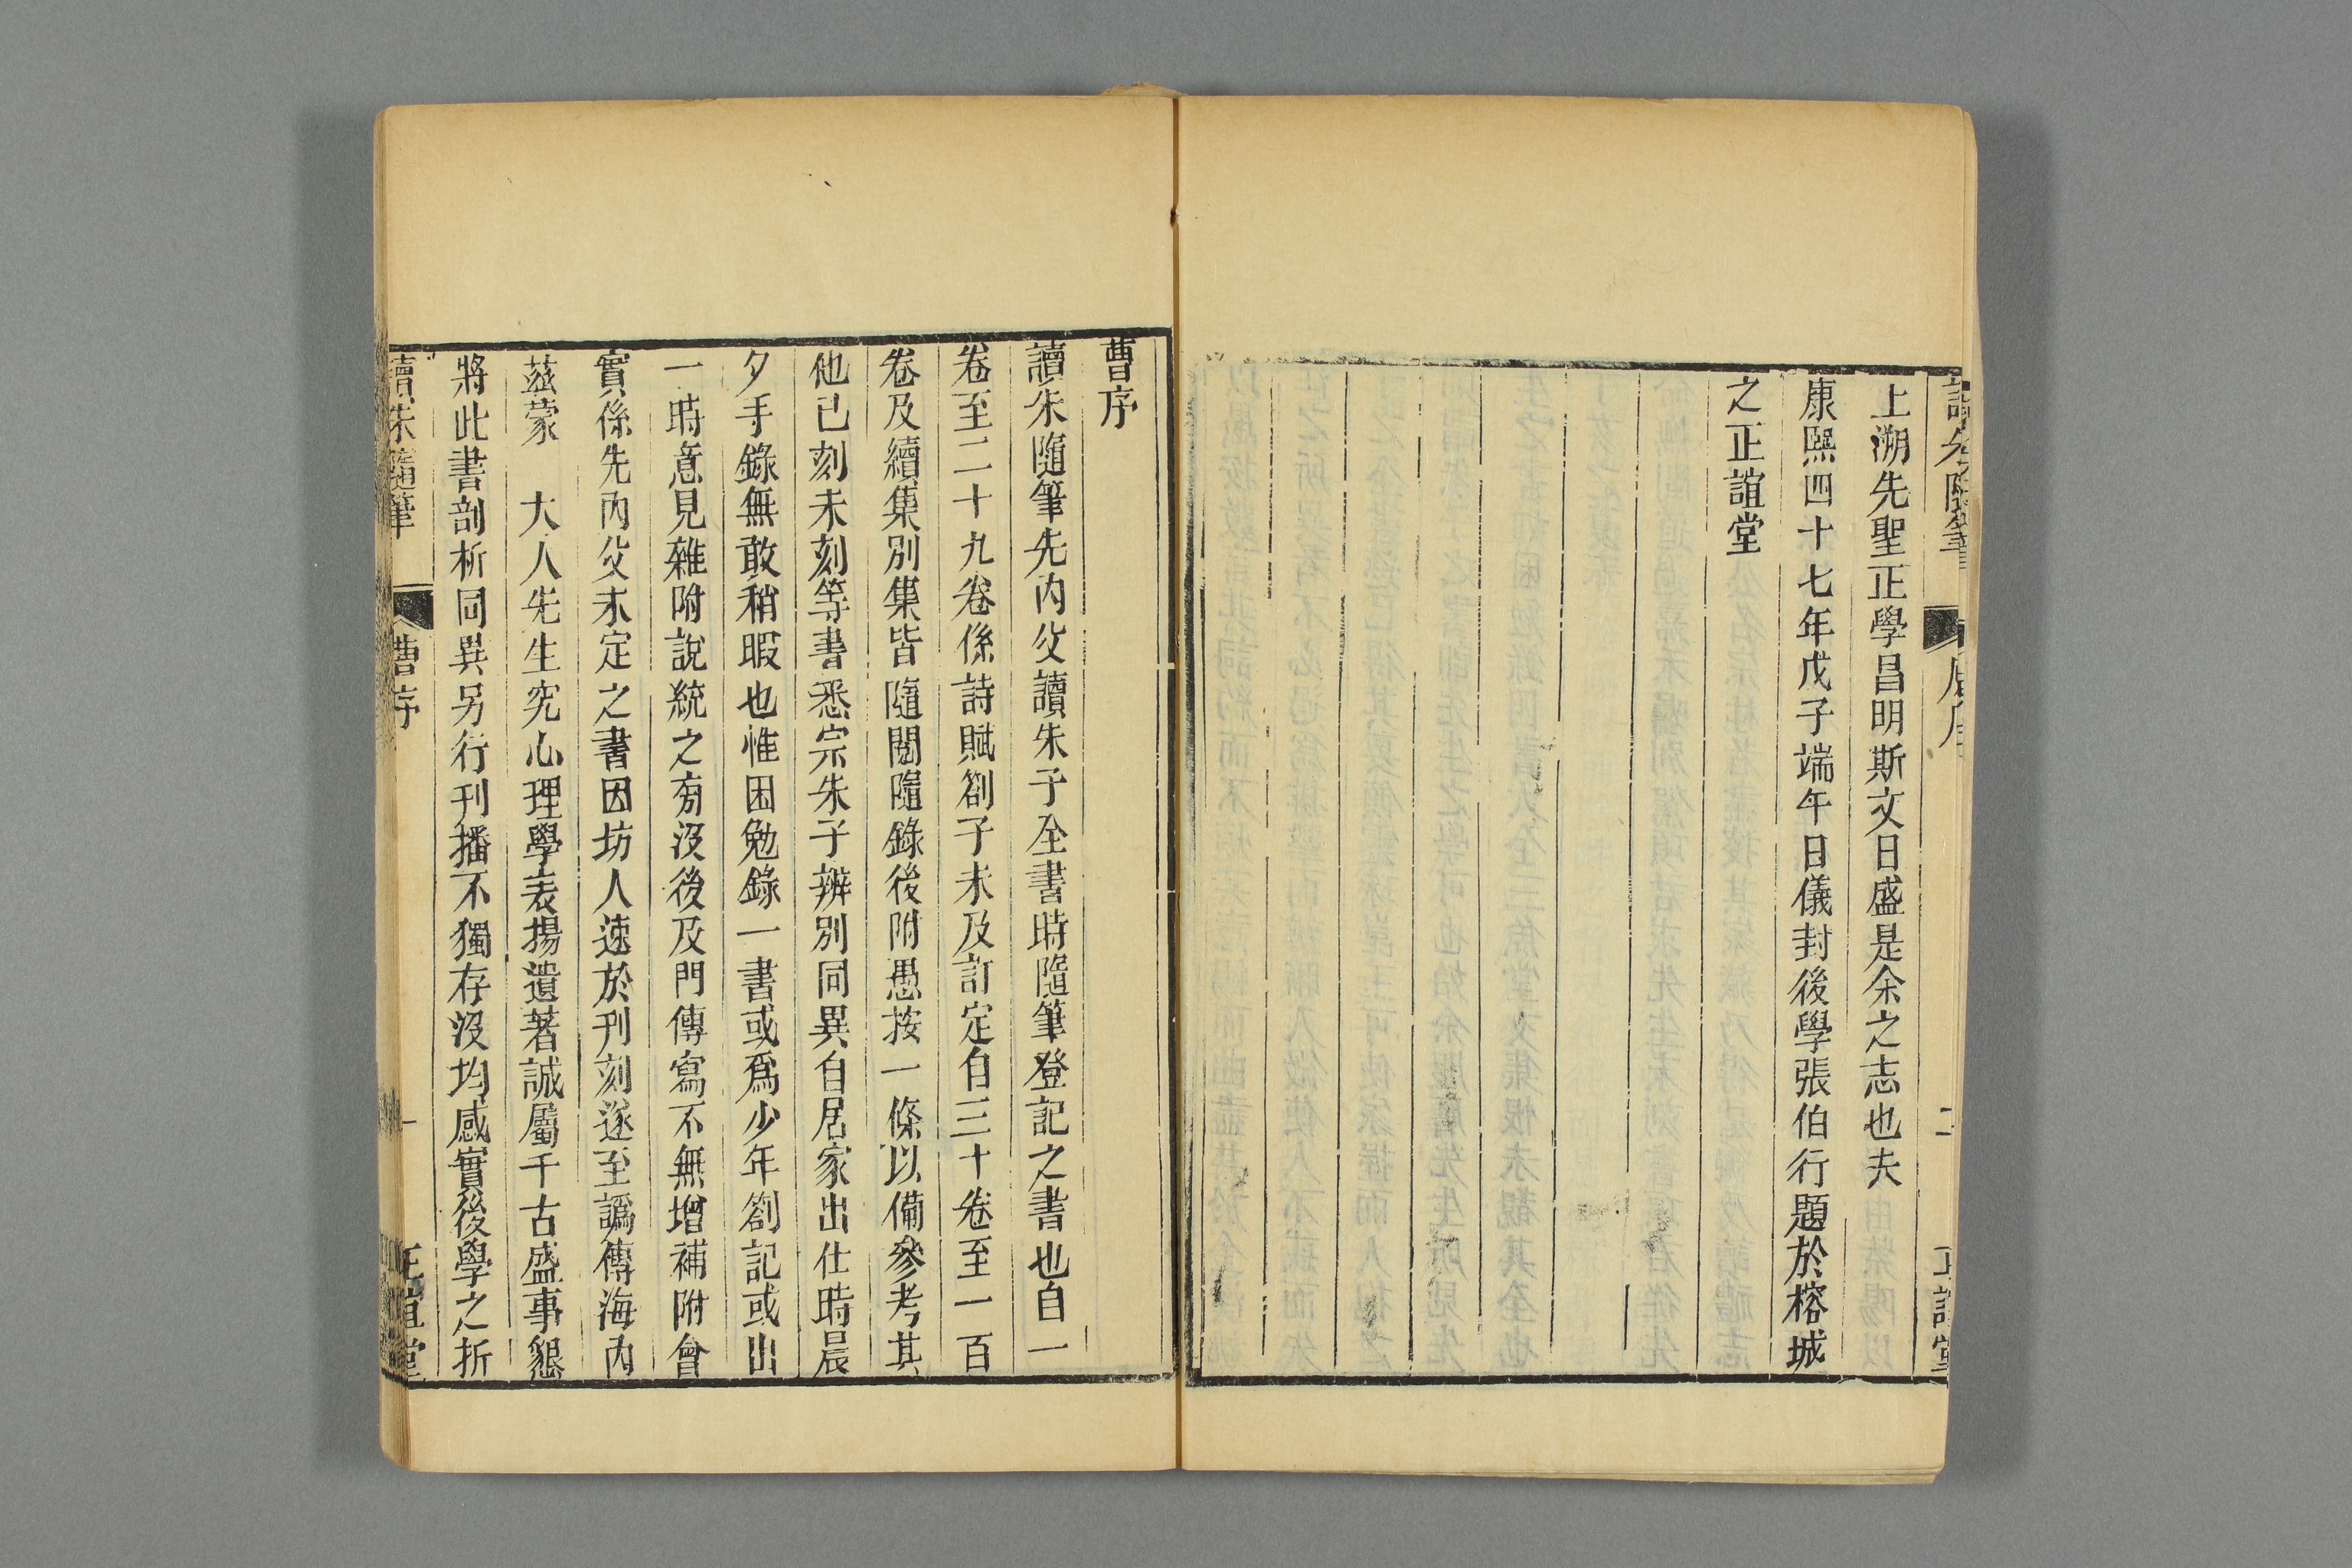 上溯先聖正學昌明斯文日盛是余之志也夫
康熙四十七年戊子端午日儀封後學張伯行題於榕城
之正誼堂
曹序
讀朱隨筆先內父讀朱子全書時隨筆登記之書也自一
卷至二十九卷係詩賦劄子未及訂定自三十卷至一百
卷及續集別集皆隨閱隨錄後附愚按一條以備參考其
他已刻未刻等書悉宗朱子辨別同異自居家出仕時晨
夕手錄無敢稍暇也惟困勉錄一書或爲少年劄記或出
一時意見雜附說統之旁沒後及門傳寫不無增補附會
實係先內父未定之書因坊人速於刊刻遂至譌傳海內
茲蒙　大人先生究心理學表揚遺著誠屬千古盛事懇
將此書剖析同異另行刊播不獨存沒均感實後學之折
讀朱隨筆　曹序　一　正誼堂